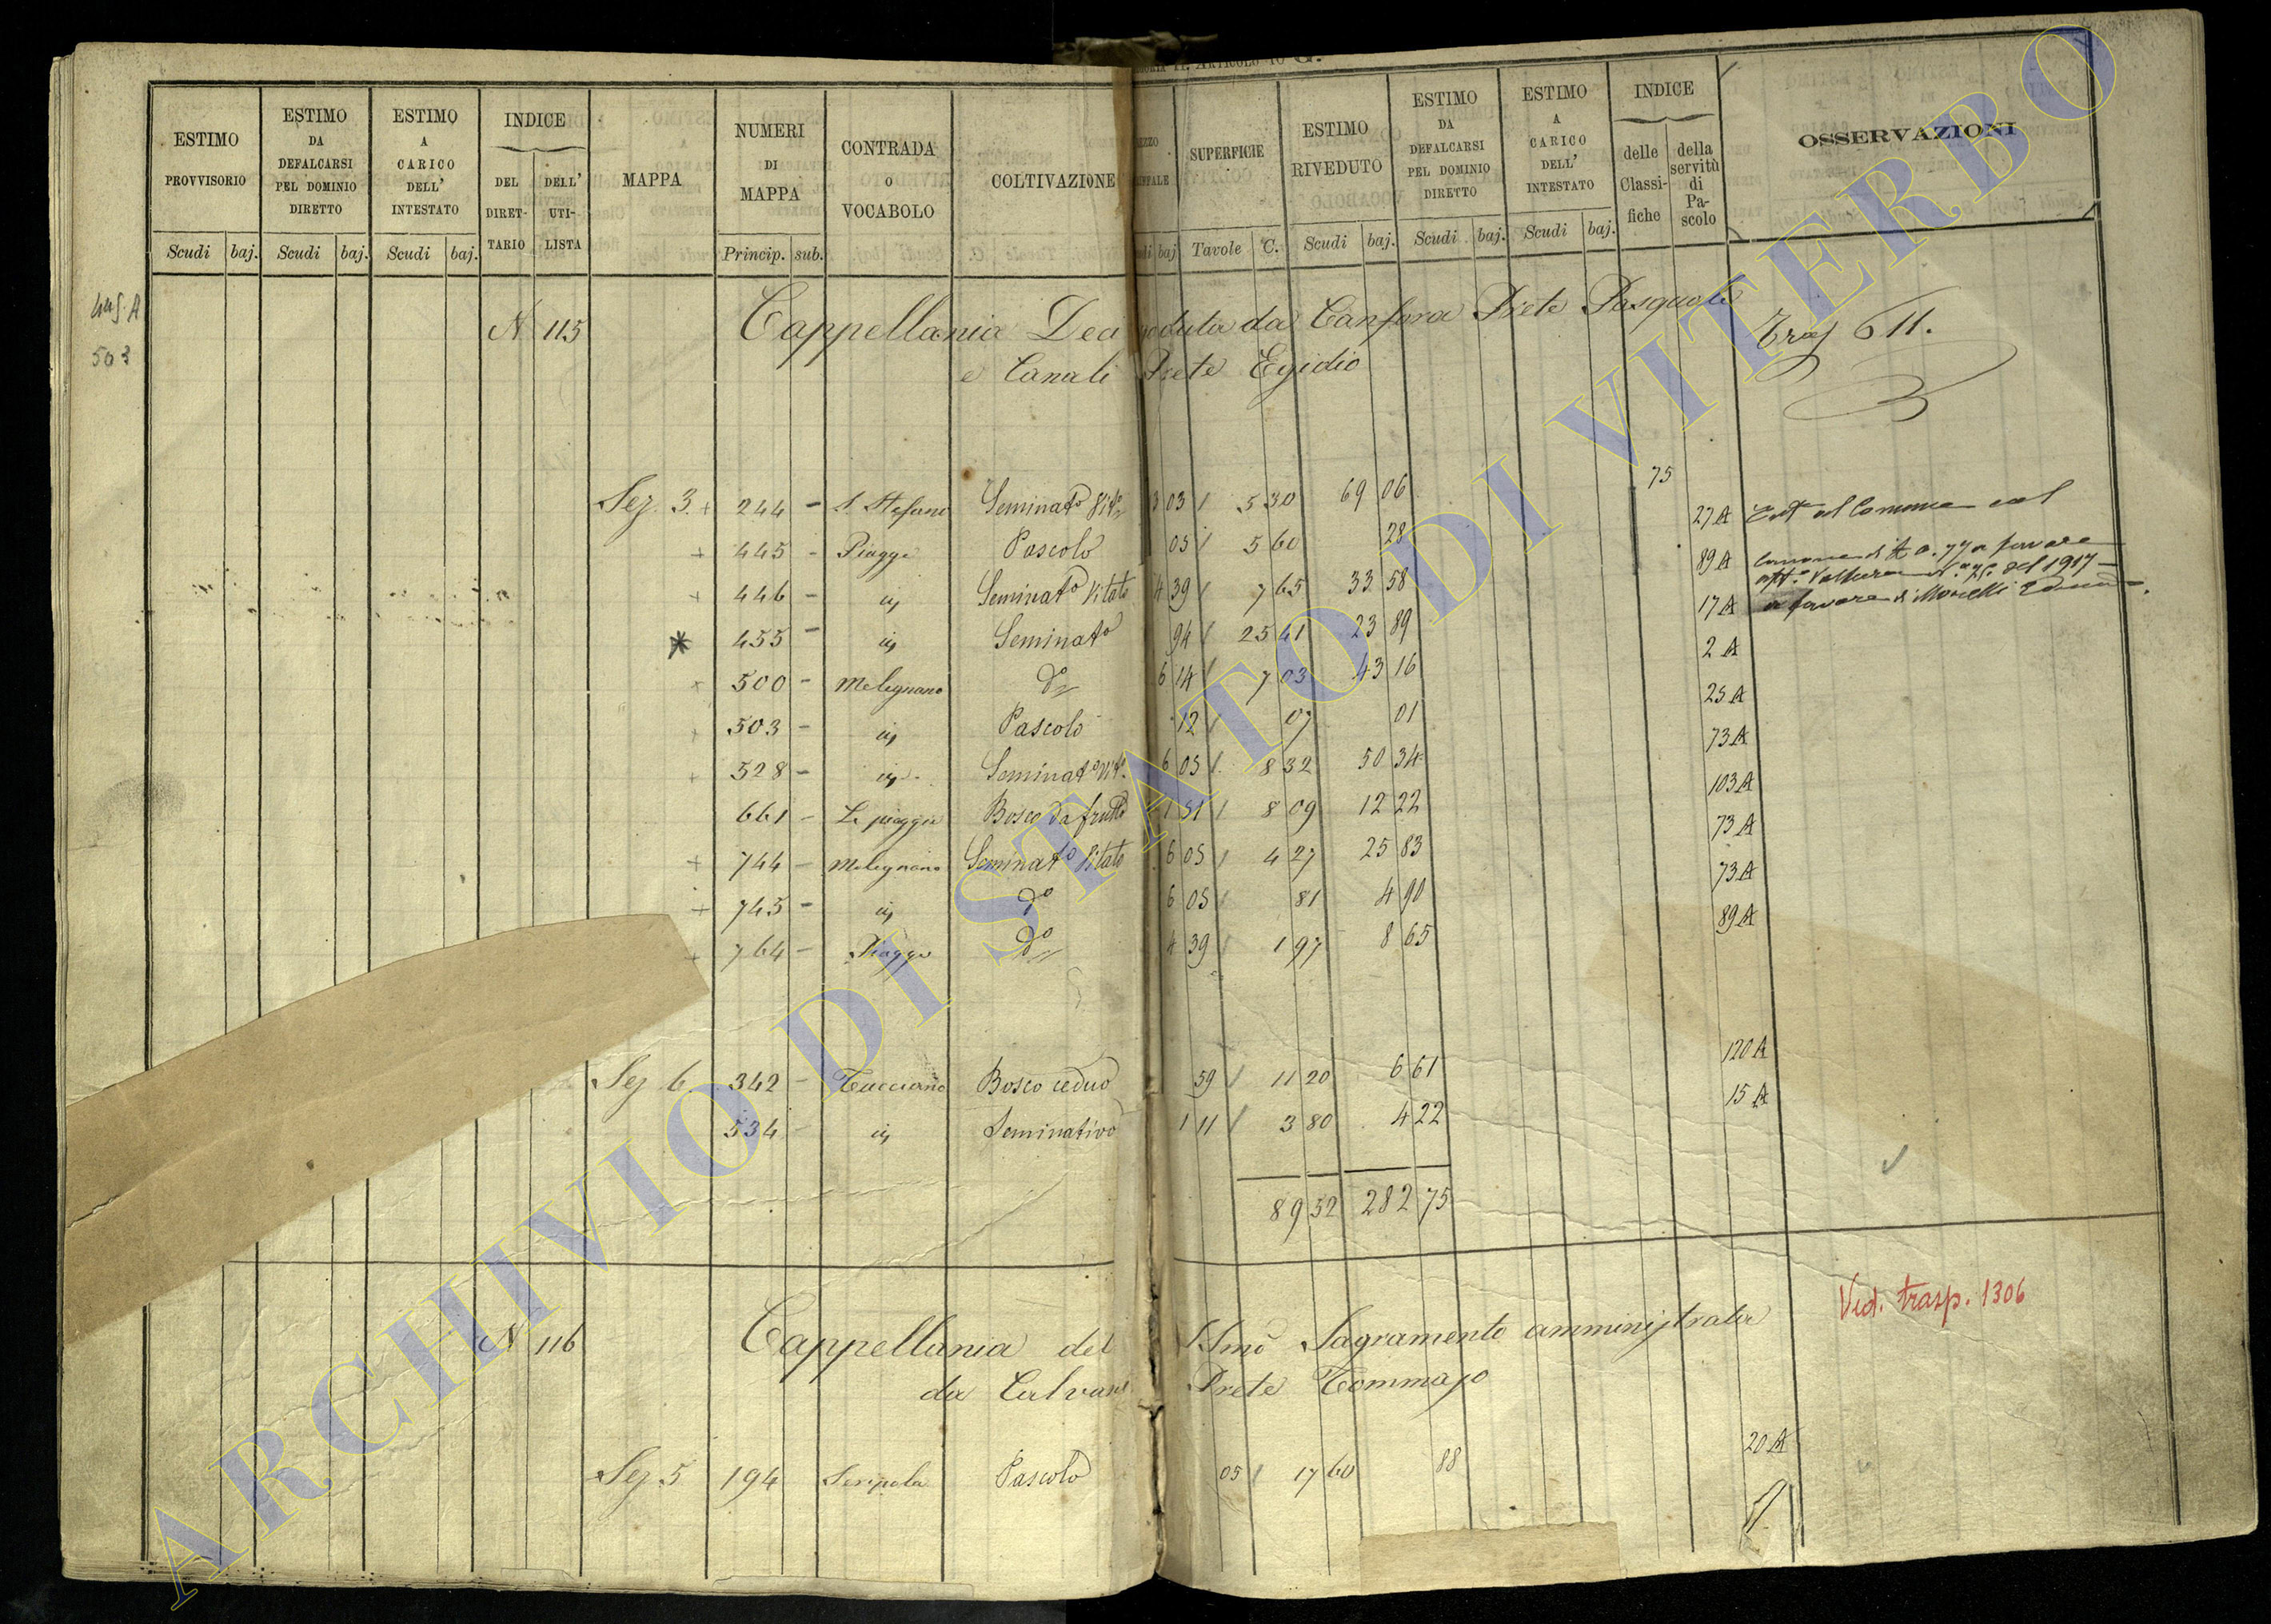 ARTICOLO 10 G.
ESTIMO PROVVISORIO
ESTIMO DA DEFALCARSI PEL DOMINIO DIRETTO
ESTIMO A CARICO DELL' INTESTATO
INDICE
DEL DIRET-TARIO
DELL' UTI-LISTA
MAPPA
NUMERI DI MAPPA
CONTRADA O VOCABOLO
COLTIVAZIONE
SUPERFICIE
ESTIMO RIVEDUTO
ESTIMO DA DEFALCARSI PEL DOMINIO DIRETTO
ESTIMO A CARICO DELL' INTESTATO
INDICE
delle Classi-fiche
della servitù di Pa-scolo
OSSERVAZIONI
Scudi baj. Scudi baj. Scudi baj. Princip. sub. baj Tavole C. Scudi baj. Scudi baj. Scudi baj.
503
N 115 Cappellania Dea goduta da Canfora Prete Pasquale
e Canali Prete Egidio
Trasp 611.
75
Sez. 3. + 244 - S. Stefano Seminato Vito 3 03 / 5 30 69 06 27 A
+ 445 - Piagge Pascolo 05 / 5 60 28 89 A
+ 446 - id Seminato Vitato 4 39 / 7 65 33 58 17 A
* 455 - id Seminato 94 / 25 41 23 89 2 A
+ 500 - Melegnano do 6 14 / 7 03 43 16 25 A
+ 503 - id Pascolo 12 / 07 01 73 A
+ 528 - id Seminato Vito 6 05 / 8 32 50 34 103 A
661 - Le piagge Bosco da frutto 1 51 / 8 09 12 22 73 A
+ 744 - Melegnano Seminato Vitato 6 05 / 4 27 25 83 73 A
+ 745 - id do 6 05 / 81 4 90 89 A
+ 764 - Piagge do 4 39 / 1 97 8 65
del 1917
a favore di Morelli
Sez 6 342 - Tucciano Bosco ceduo 59 / 11 20 6 61 120 A
534 - id Seminativo 1 11 / 3 80 4 22 15 A
89 52 282 75
N 116 Cappellania del SSmo Sagramento amministrata
da Calvani Prete Tommaso
Ved. trasp. 1306
Sez 5 194 Seripola Pascolo 05 / 17 60 88 20 A
ARCHIVIO DI STATO DI VITERBO